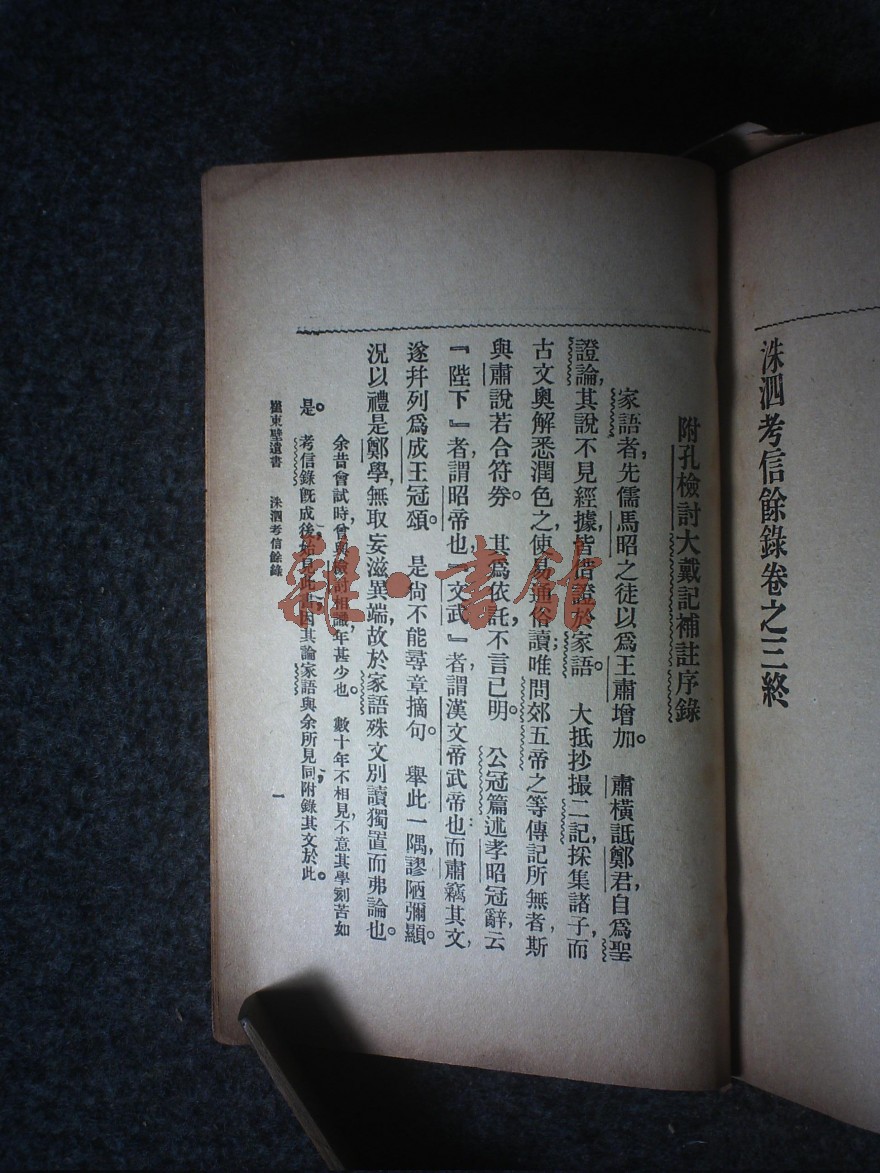 洙泗考信餘錄卷之三終
附孔檢討大戴記補註序錄
家語者，先儒馬昭之徒以爲王肅增加。　肅橫詆鄭君，自爲聖
證論，其說不見經據，皆借證於家語。　大抵抄撮二記，採集諸子，而
古文奧解悉潤色之，使易通俗讀；唯問郊五帝之等傳記所無者，斯
與肅說若合符券。　其爲依託，不言已明。　公冠篇述孝昭冠辭，云
『陛下』者，謂昭帝也，『文武』者，謂漢文帝武帝也；而肅竊其文，
遂幷列爲成王冠頌。　是尙不能尋章摘句。　舉此一隅，謬陋彌顯。
況以禮是鄭學，無取妄滋異端，故於家語殊文別讀獨置而弗論也。
余昔會試時，曾與檢討相識，年甚少也。　數十年不相見，不意其學刻苦如
是。　考信錄旣成後，始見此書；因其論家語與余所見同，附錄其文於此。
崔東壁遺書　洙泗考信餘錄　一
雜·書館